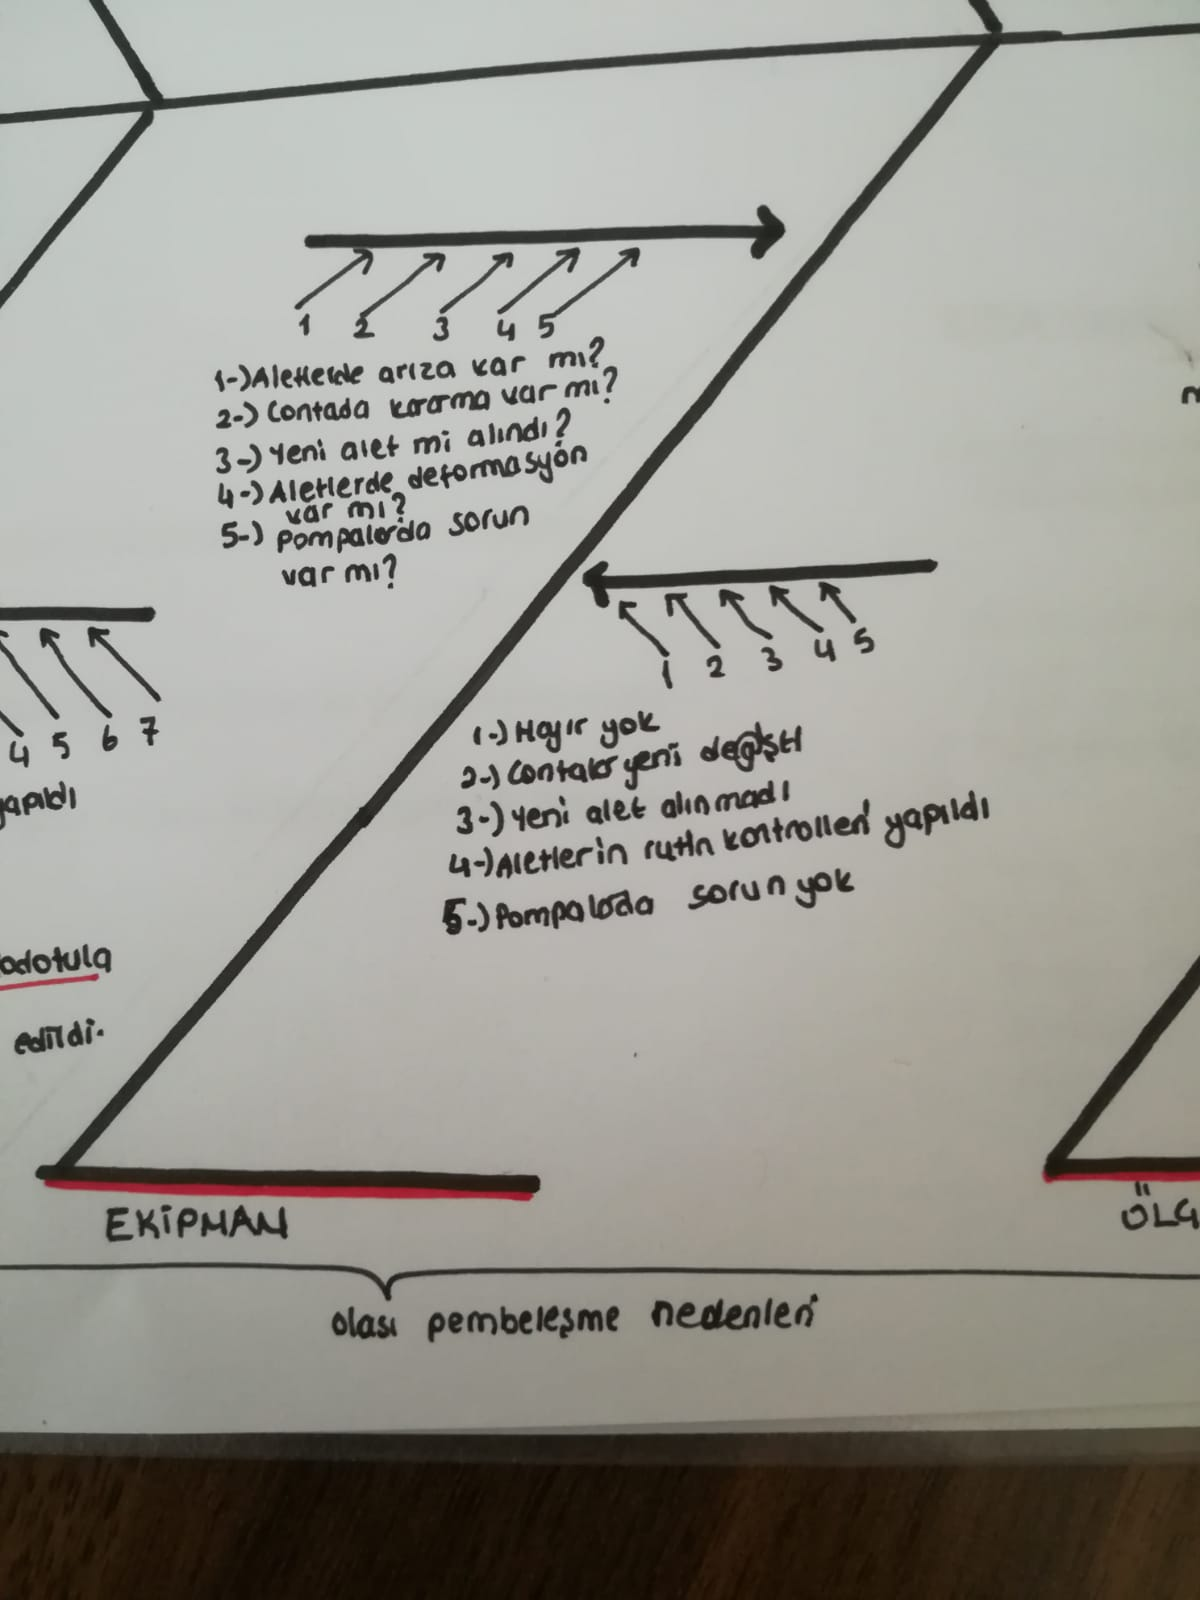 1 2 3 4 5
1-) Aletlerde arıza var mı?
2-) Contada kararma var mı?
3-) Yeni alet mi alındı?
4-) Aletlerde deformasyon
var mı?
5-) Pompalarda sorun
var mı?
1 2 3 4 5
1-) Hayır yok
2-) Contalar yeni değişti
3-) Yeni alet alınmadı
4-) Aletlerin rutin kontrolleri yapıldı
5-) Pompalarda sorun yok
4 5 6 7
yapıldı
edildi.
EKİPMAN
ÖLÇ
olası pembeleşme nedenleri